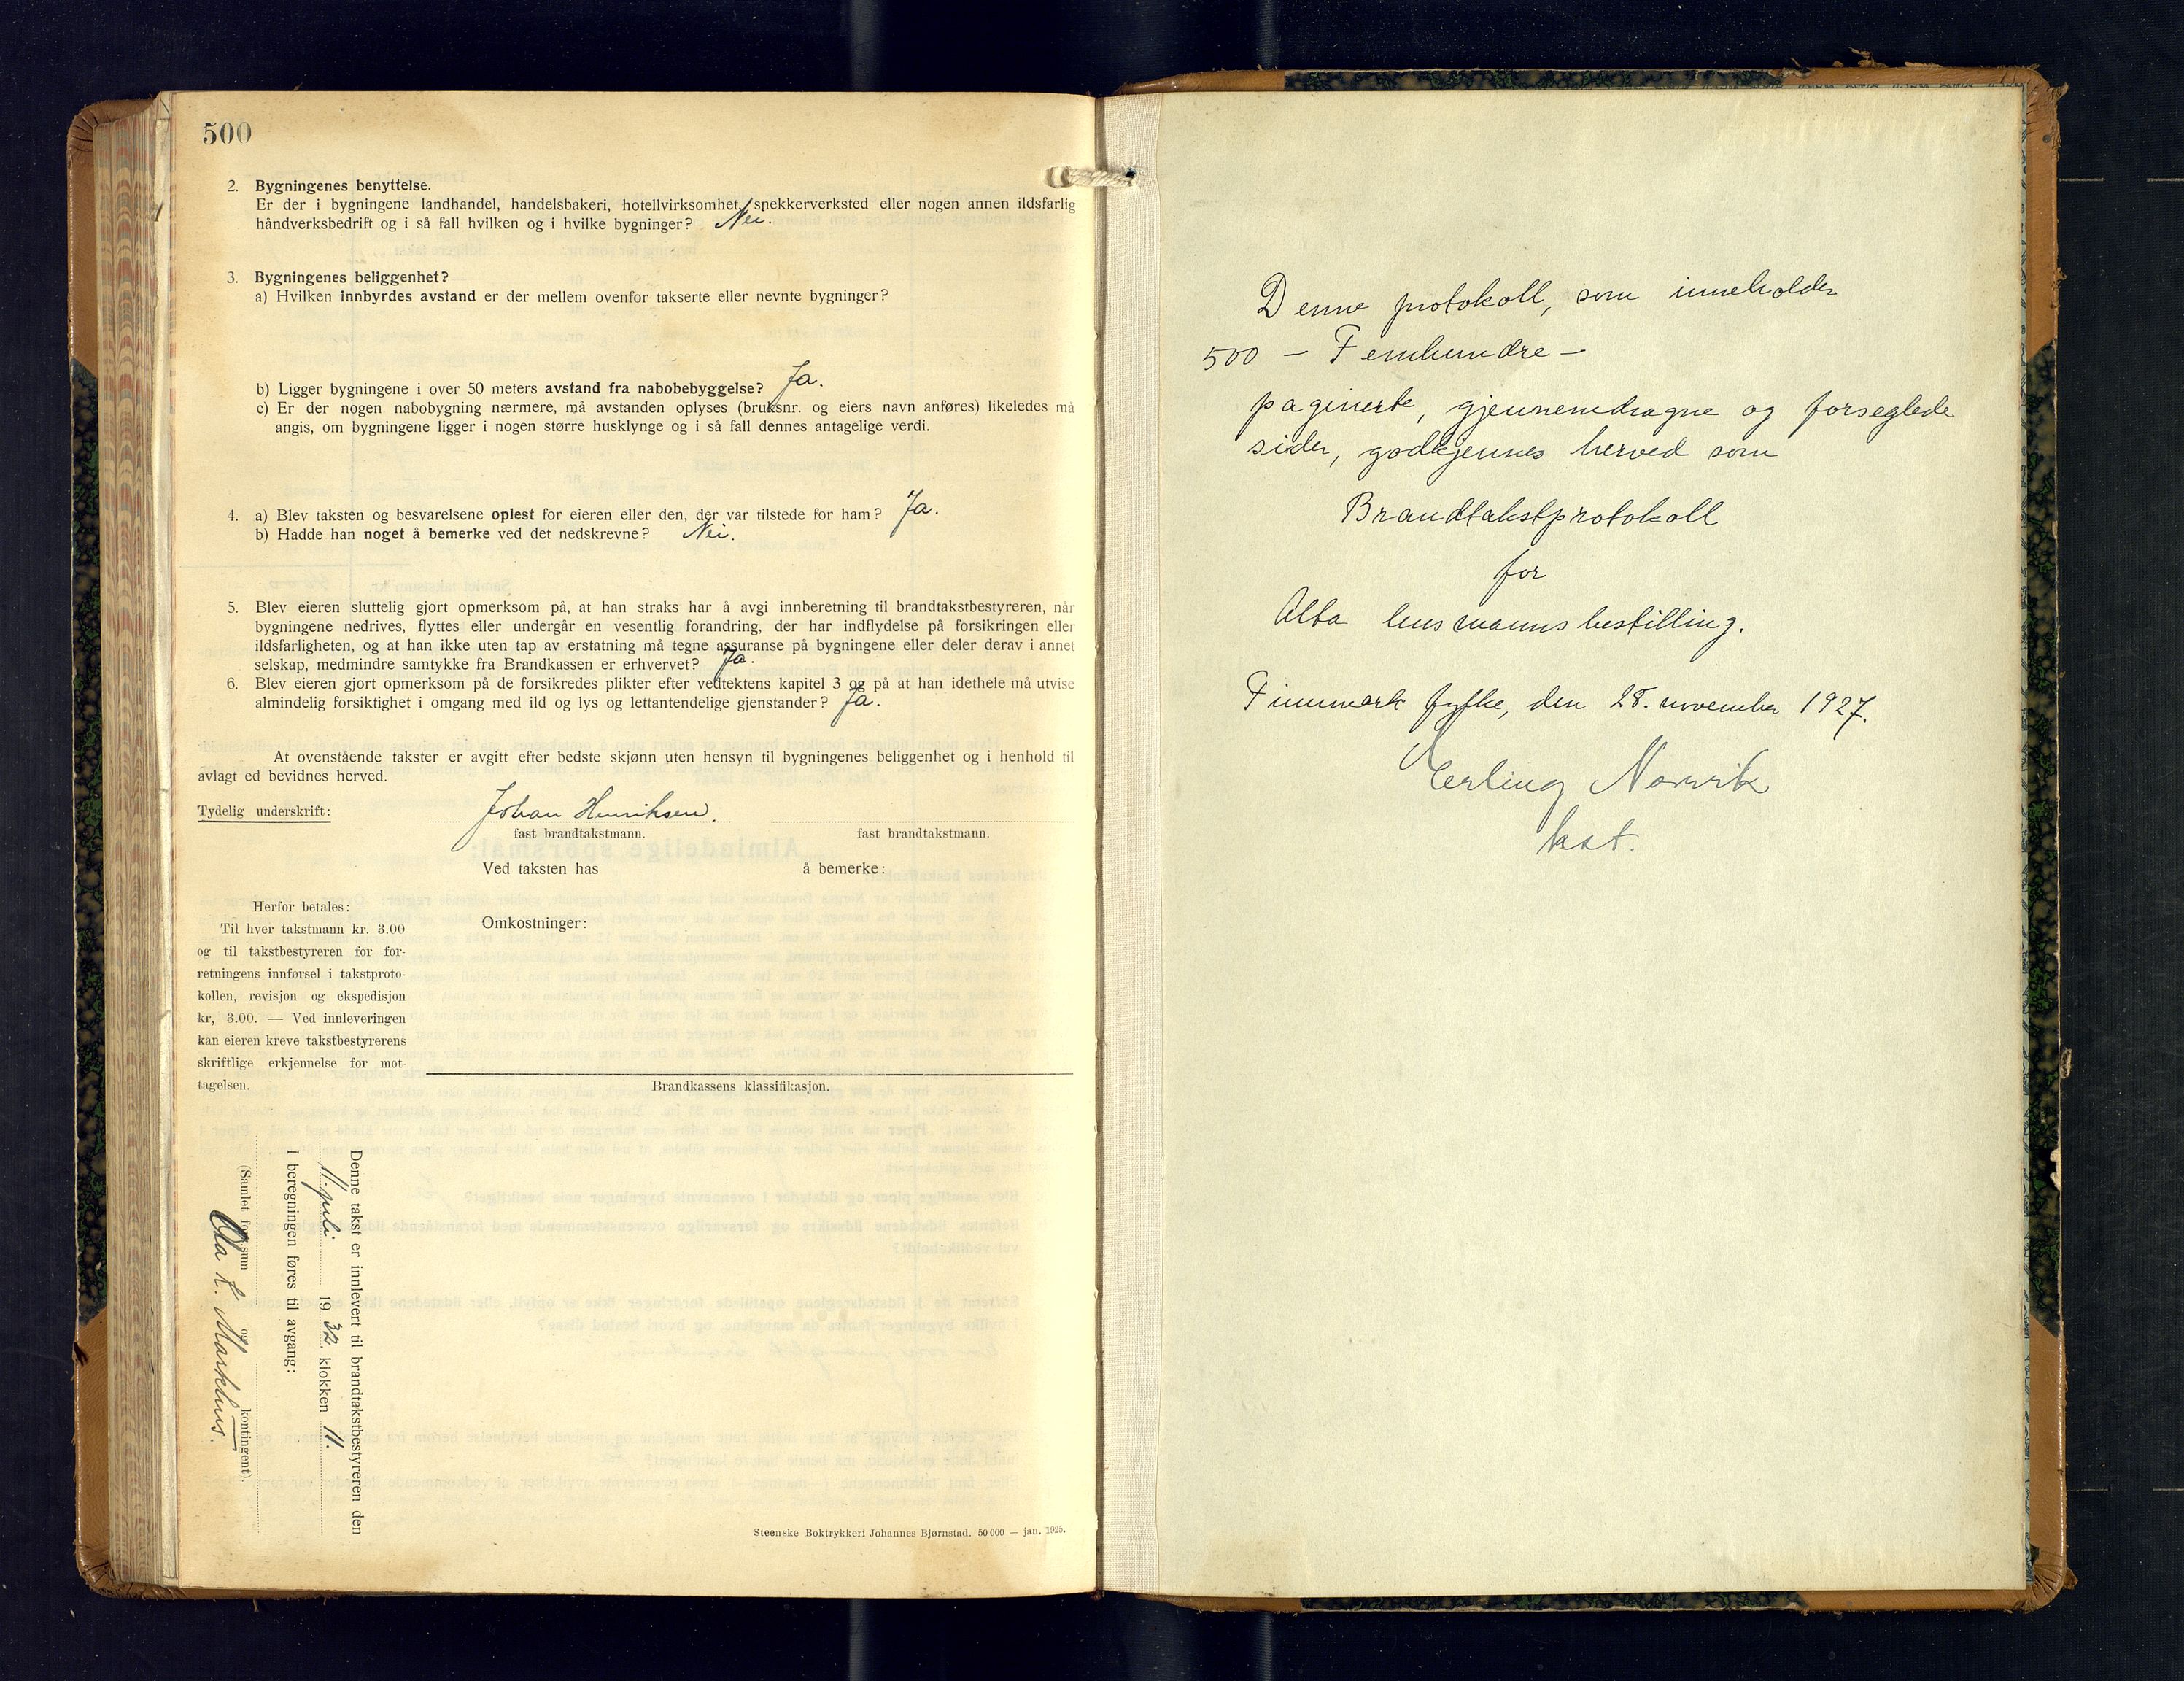 500
2. Bygningenes benyttelse.
Er der i bygningene landhandel, handelsbakeri, hotellvirksomhet, snekkerverksted eller nogen annen ildsfarlig
håndverksbedrift og i så fall hvilken og i hvilke bygninger? Nei.
3. Bygningenes beliggenhet?
a) Hvilken innbyrdes avstand er der mellem ovenfor takserte eller nevnte bygninger?
b) Ligger bygningene i over 50 meters avstand fra nabobebyggelse? Ja.
c) Er der nogen nabobygning nærmere, må avstanden oplyses (bruksnr. og eiers navn anføres) likeledes må
angis, om bygningene ligger i nogen større husklynge og i så fall dennes antagelige verdi.
4. a) Blev taksten og besvarelsene oplest for eieren eller den, der var tilstede for ham? Ja.
b) Hadde han noget å bemerke ved det nedskrevne? Nei.
5. Blev eieren sluttelig gjort opmerksom på, at han straks har å avgi innberetning til brandtakstbestyreren, når
bygningene nedrives, flyttes eller undergår en vesentlig forandring, der har indflydelse på forsikringen eller
ildsfarligheten, og at han ikke uten tap av erstatning må tegne assuranse på bygningene eller deler derav i annet
selskap, medmindre samtykke fra Brandkassen er erhvervet? Ja.
6. Blev eieren gjort opmerksom på de forsikredes plikter efter vedtektens kapitel 3 og på at han idethele må utvise
almindelig forsiktighet i omgang med ild og lys og lettantendelige gjenstander? Ja.
At ovenstående takster er avgitt efter bedste skjønn uten hensyn til bygningenes beliggenhet og i henhold til
avlagt ed bevidnes herved.
Tydelig underskrift: Johan Henriksen.
fast brandtakstmann. fast brandtakstmann.
Ved taksten has å bemerke:
Omkostninger:
Herfor betales:
Til hver takstmann kr. 3.00
og til takstbestyreren for for-
retningens innførsel i takstproto-
kollen, revisjon og ekspedisjon
kr, 3.00. — Ved innleveringen
kan eieren kreve takstbestyrerens
skriftlige erkjennelse for mot-
tagelsen.
Brandkassens klassifikasjon.
Denne takst er innlevert til brandtakstbestyreren den
11. juli 1932. klokken 11.
I beregningen føres til avgang:
(Samlet fors.sum og kontingent).
Ola L. Maskhus.
Steenske Boktrykkeri Johannes Bjørnstad. 50 000 — jan. 1925.
Denne protokoll, som inneholder
500 — Femhundre —
paginerte, gjennemdragne og forseglede
sider, godkjennes herved som
Brandtakstprotokoll
for
Alta lensmannsbestilling.
Finnmark fylke, den 28. november 1927.
Erling Norvik
kst.